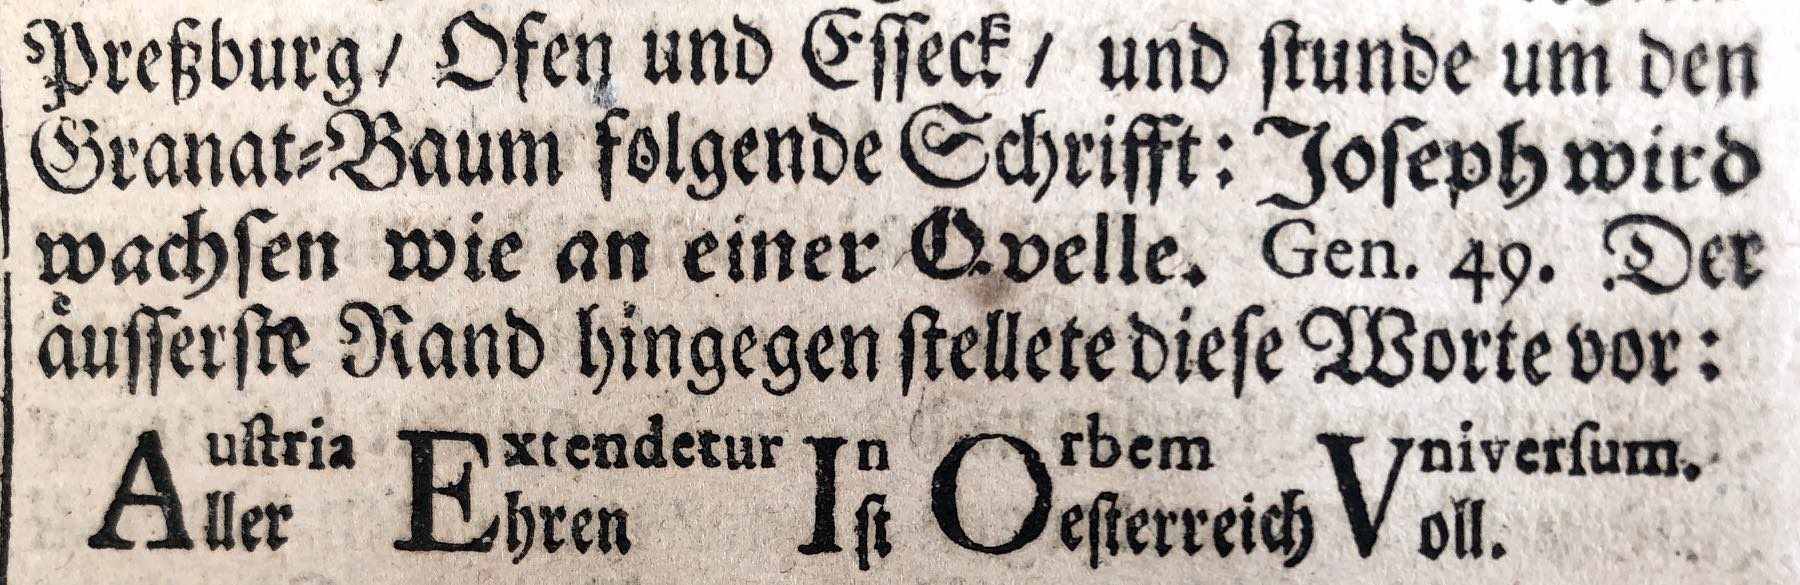 Preßburg / Ofen und Eſſeck / und ſtunde um den
Granat-Baum folgende Schrifft: Joſeph wird
wachſen wie an einer Qvelle. Gen. 49. Der
aͤuſſerſte Rand hingegen ſtellete dieſe Worte vor:
Auſtria Extendetur In Orbem Vniverſum.
Aller Ehren Iſt Oeſterreich Voll.